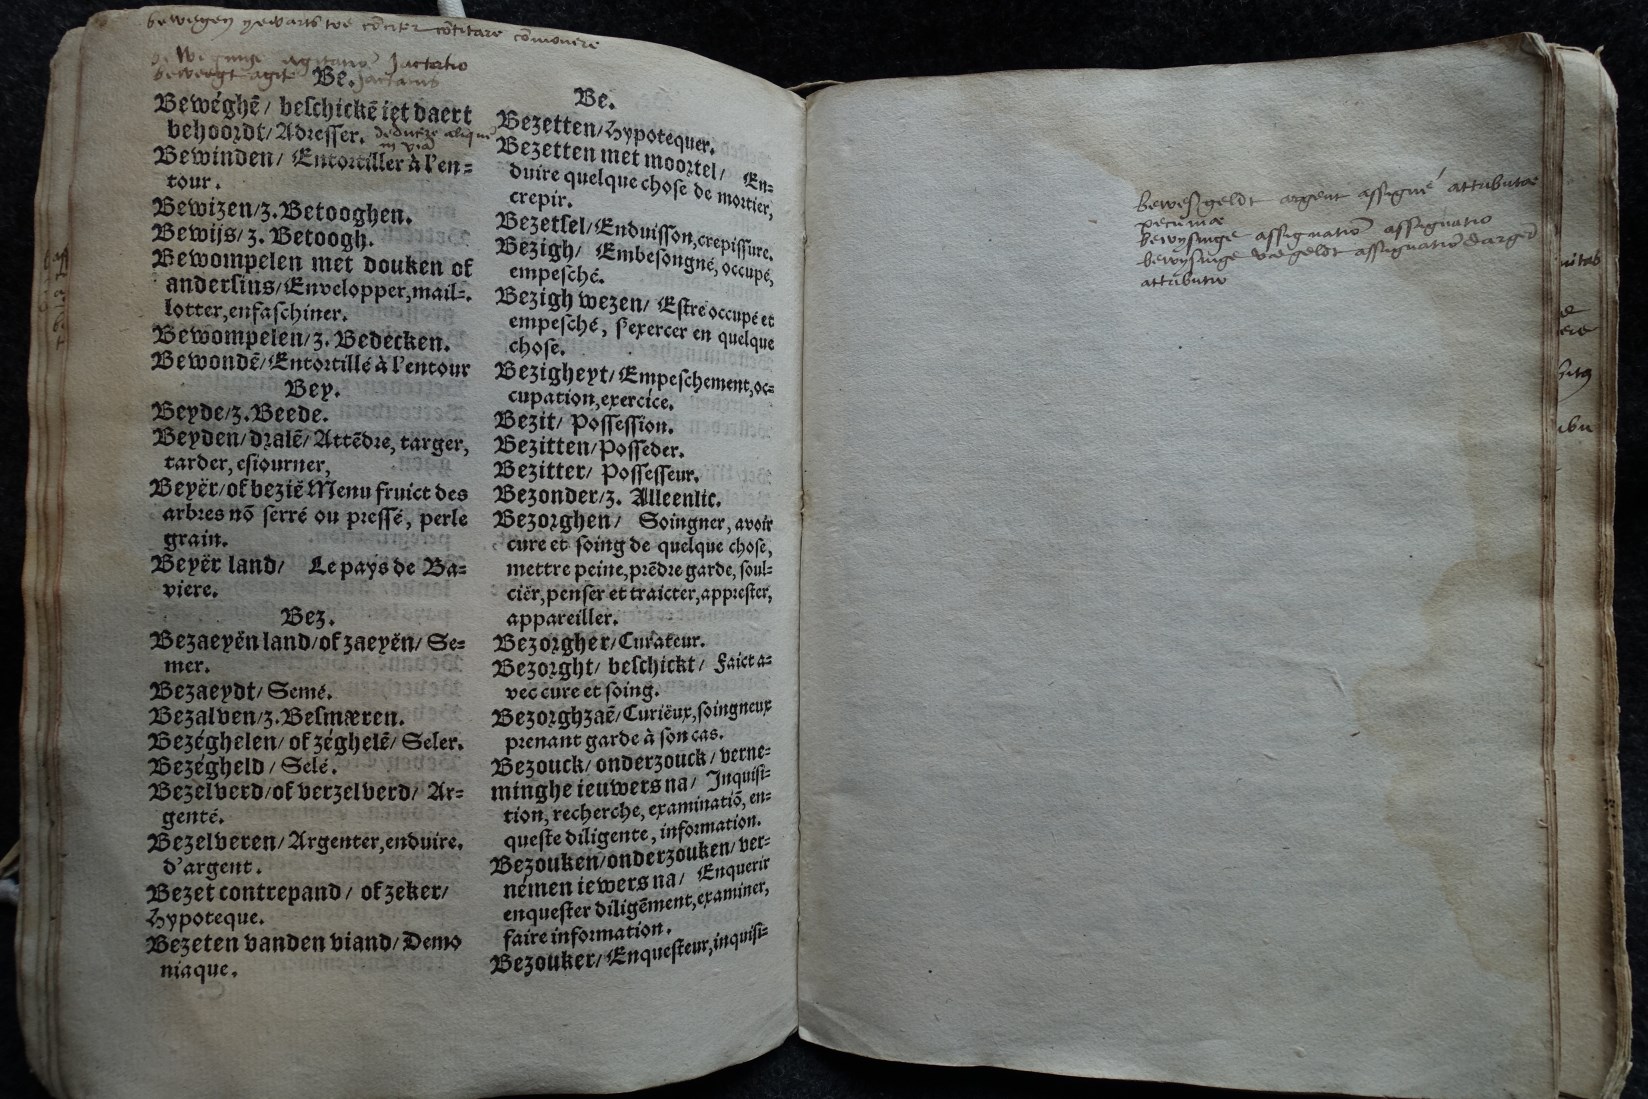 bewegen yewarts toe cōciter cōcitare cōmovere
beweginge agitatiō Jactatio
beweegt agité Jactatus
Be.
Bewéghē/ beſchickē iet daert
behoordt/Adreſſer. deducere aliquē
in viā
Bewinden/ Entortiller à l'en=
tour.
Bewizen/z. Betooghen.
Bewijs/z. Betoogh.
Bewompelen met douken of
anderſins/Envelopper,mail=
lotter,enfaſchiner.
Bewompelen/z. Bedecken.
Bewondē/Entortillé à l'entour
Bey.
Beyde/z. Beede.
Beyden/dralē/Attēdre, targer,
tarder, eſiourner,
Beyër/of bezië Menu fruict des
arbres nō ſerré ou preſſé, perle
grain.
Beyër land/ Le pays de Ba=
viere.
Bez.
Bezaeyën land/of zaeyën/ Se=
mer.
Bezaeydt/Semé.
Bezalven/z. Beſmæren.
Bezéghelen/ of zéghelē/ Seler.
Bezégheld/ Selé.
Bezelverd/of verzelverd/ Ar=
genté.
Bezelveren/Argenter,enduire.
d'argent.
Bezet contrepand/ of zeker/
Hypoteque.
Bezeten vanden viand/Demo
niaque.
Be.
Bezetten/Hypotequer.
Bezetten met moortel/ En=
duire quelque choſe de mortier,
crepir.
Bezetſel/Enduiſſon,crepiſſure.
Bezigh/ Embeſongné, occupé,
empeſché.
Bezigh wezen/ Eſtre occupé et
empeſché, ſ'exercer en quelque
choſe.
Bezigheyt/Empeſchement,oc=
cupation,exercice.
Bezit/ Poſſeſſion.
Bezitten/Poſſeder.
Bezitter/ Poſſeſſeur.
Bezonder/z. Alleenlic.
Bezorghen/ Soingner, avoir
cure et ſoing de quelque choſe,
mettre peine,prēdre garde, ſoul=
ciër,penſer et traicter,appreſter,
appareiller.
Bezorgher/Curateur.
Bezorght/ beſchickt/ Faict a=
vec cure et ſoing.
Bezorghzaē/Curiëux,ſoingneux
prenant garde à ſon cas.
Bezouck/ onderzouck/ verne=
minghe ieuwers na/ Inquiſi=
tion, recherche, examinatiō, en=
queſte diligente, information.
Bezouken/onderzouken/ver=
némen iewers na/ Enquerir
enqueſter diligēment,examiner,
faire information.
Bezouker/Enqueſteur,inquiſi=
bewesgeldt argent aſſigné attributae
pecuniae
bewysinge aſſignatiō aſſignatio
bewysinge vā geldt aſſignatiō d'argēt
attributio